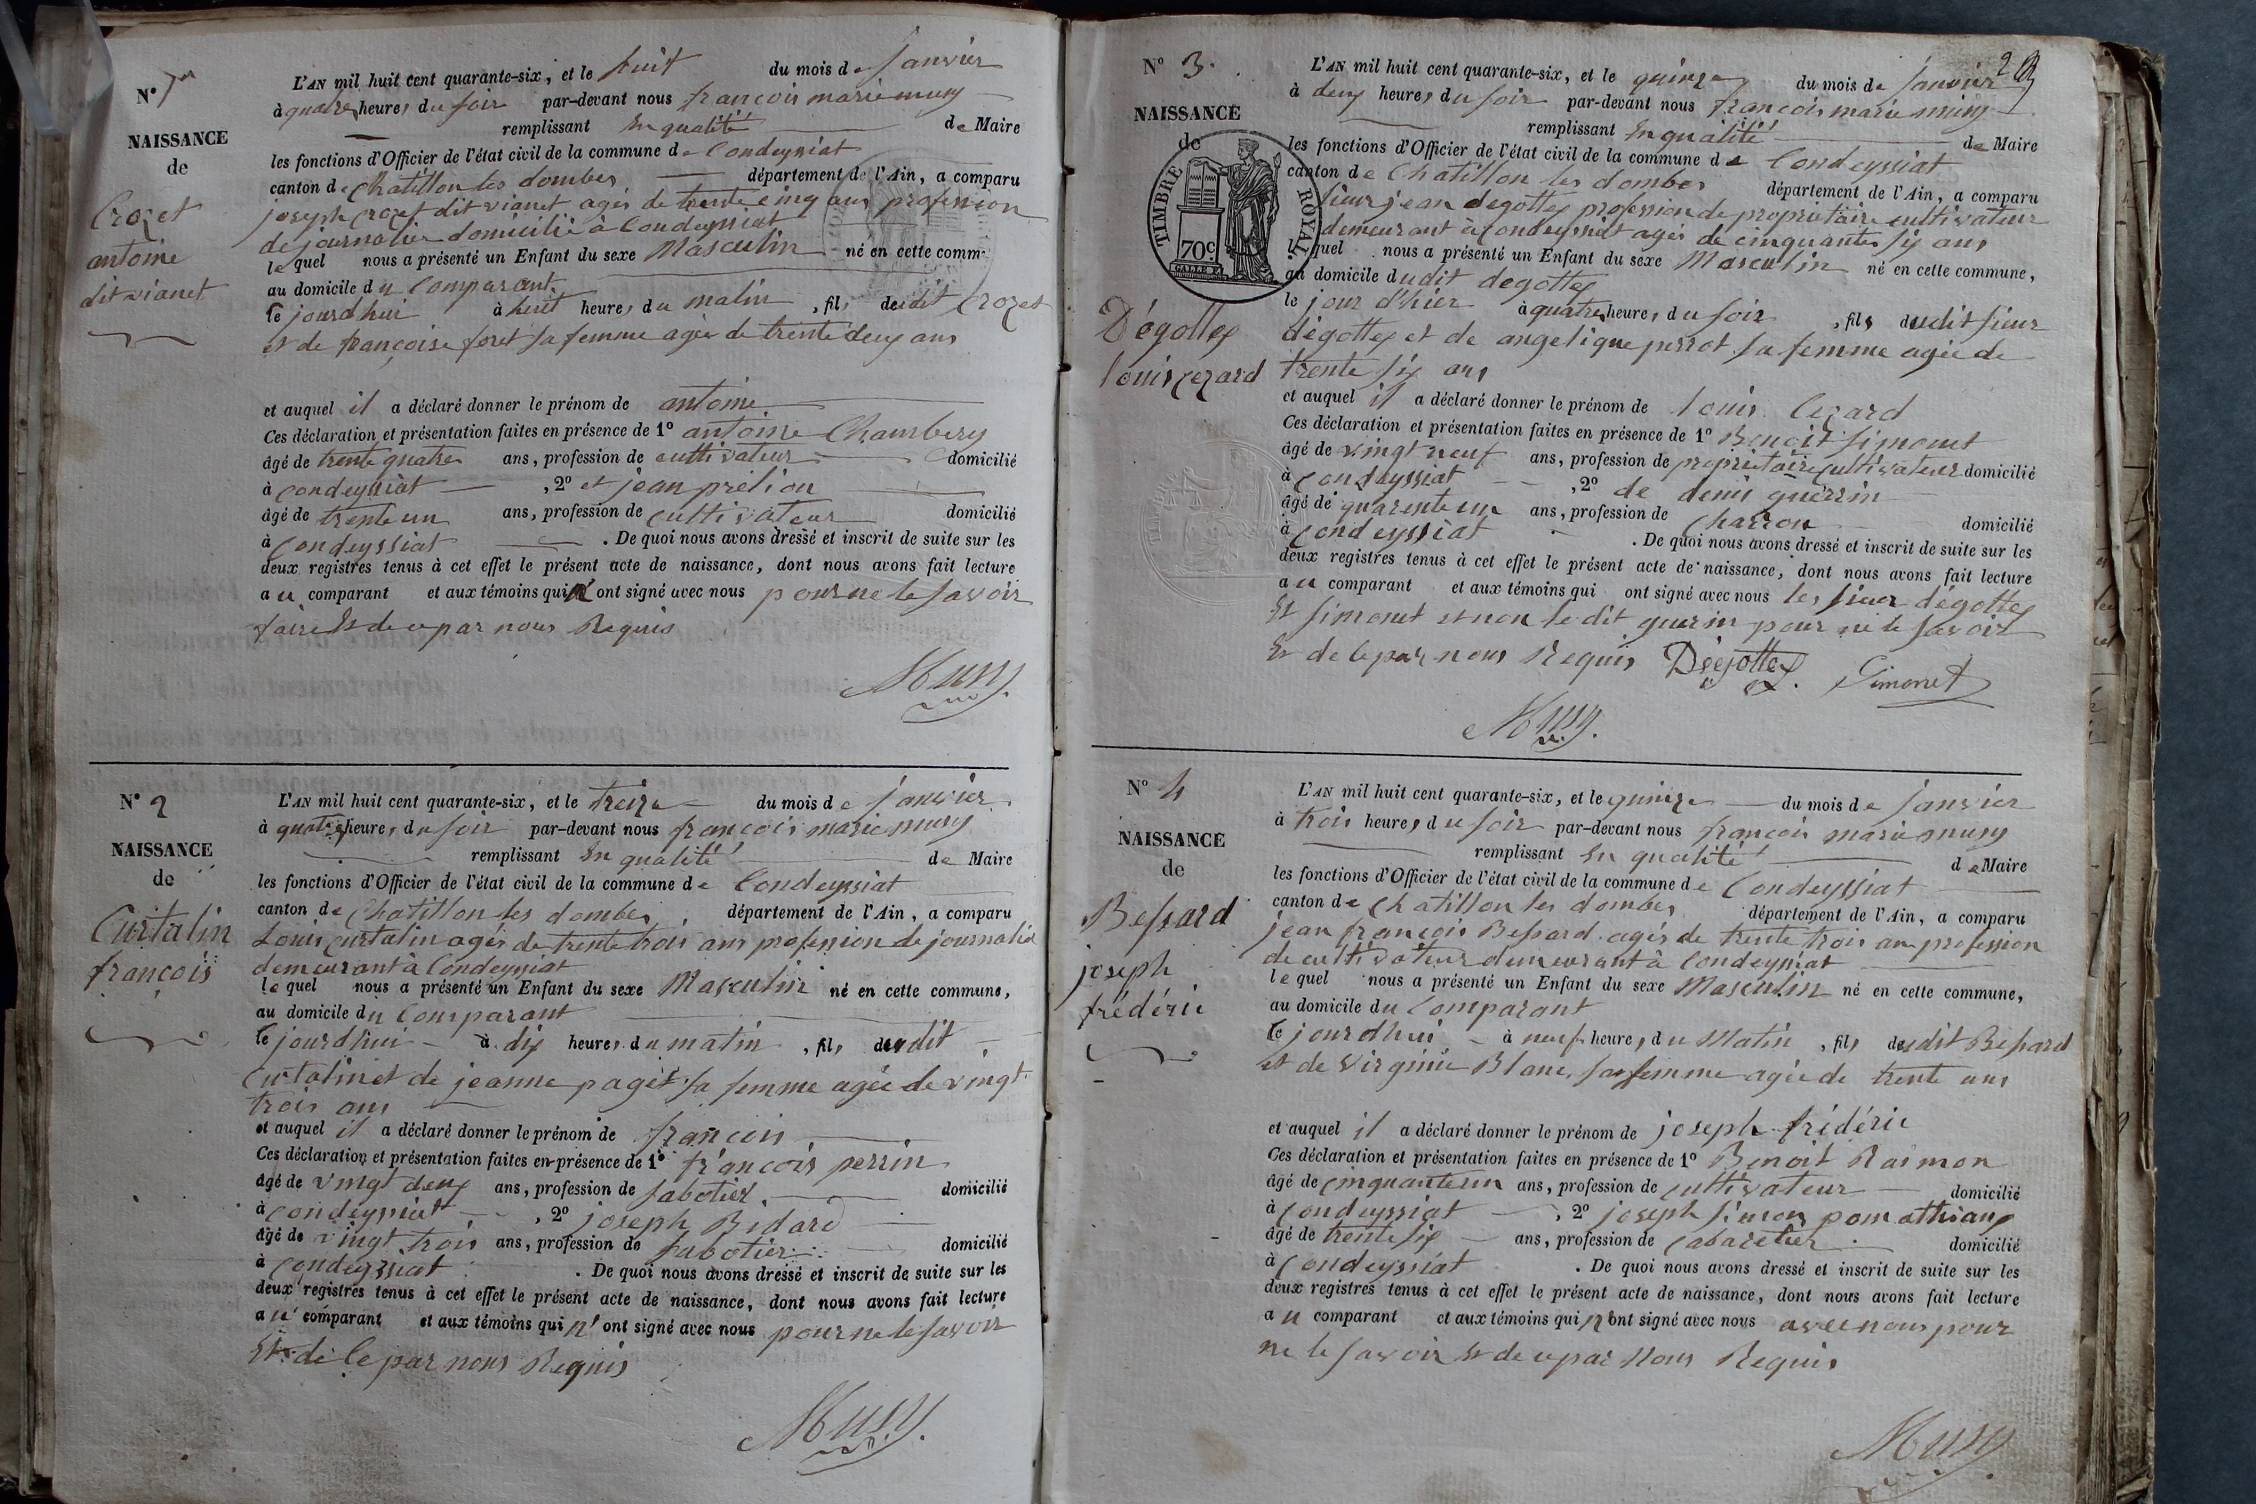 N° 1er
NAISSANCE
de
Crozet
antoine
dit vianet
L'AN mil huit cent quarante-six, et le huit du mois de janvier
à quatre heures du soir par-devant nous françois marie musy
remplissant En qualité de Maire
les fonctions d'Officier de l'état civil de la commune de Condeyssiat
canton de Chatillon les dombes département de l'Ain, a comparu
joseph crozet dit vianet agés de trente cinq ans profession
de journalier domicilié à Condeyssiat
lequel nous a présenté un Enfant du sexe Masculin né en cette comm
au domicile du Comparant
le jourdhui à huit heures du matin, fils dudit Crozet
et de françoise foret sa femme agée de trente deux ans
et auquel il a déclaré donner le prénom de antoine
Ces déclaration et présentation faites en présence de 1° antoine Chambery
âgé de trente quatre ans, profession de cultivateur domicilié
à condeyssiat, 2° et jean prelion
âgé de trente un ans, profession de cultivateur domicilié
à Condeyssiat. De quoi nous avons dressé et inscrit de suite sur les
deux registres tenus à cet effet le présent acte de naissance, dont nous avons fait lecture
au comparant et aux témoins qui n' ont signé avec nous pour ne le savoir
faire Et de ce par nous Requis
Musy
N° 2
NAISSANCE
de
Curtalin
françois
L'AN mil huit cent quarante-six, et le treize du mois de janvier
à quatre heures du soir par-devant nous françois marie musy
remplissant En qualité de Maire
les fonctions d'Officier de l'état civil de la commune de Condeyssiat
canton de Chatillon les dombes département de l'Ain, a comparu
Louis curtalin agés de trente trois ans profession de journalié
demeurant à Condeyssiat
lequel nous a présenté un Enfant du sexe Masculin né en cette commune,
au domicile du Comparant
le jourdhui à dix heures du matin, fils dudit
Curtalin et de jeanne paget sa femme agée de vingt
trois ans
et auquel il a déclaré donner le prénom de françois
Ces déclaration et présentation faites en présence de 1° françois perrin
âgé de vingt deux ans, profession de sabotier domicilié
à condeyssiat, 2° joseph Bidard
âgé de vingt trois ans, profession de sabotier domicilié
à Condeyssiat. De quoi nous avons dressé et inscrit de suite sur les
deux registres tenus à cet effet le présent acte de naissance, dont nous avons fait lecture
au comparant et aux témoins qui n' ont signé avec nous pour ne le savoir
Et de Ce par nous Requis
Musy
N° 3.
NAISSANCE
de
TIMBRE ROYAL
70c
Dégottex
louis cezard
L'AN mil huit cent quarante-six, et le quinze du mois de janvier
à deux heures du soir par-devant nous françois marie musy
remplissant En qualité de Maire
les fonctions d'Officier de l'état civil de la commune de Condeyssiat
canton de Chatillon les dombes département de l'Ain, a comparu
sieur jean degottex profession de propriétaire cultivateur
demeurant à Condeyssiat agés de cinquante six ans
lequel nous a présenté un Enfant du sexe Masculin né en cette commune,
au domicile dudit degottex
le jour d'hier à quatre heures du soir, fils dudit sieur
dégottex et de angelique perrot sa femme agée de
trente six ans
et auquel il a déclaré donner le prénom de louis Cezard
Ces déclaration et présentation faites en présence de 1° Benoit simonet
âgé de vingt neuf ans, profession de propriétaire cultivateur domicilié
à Condeyssiat, 2° de denis guérrin
âgé de quarente un ans, profession de Charron domicilié
à Condeyssiat. De quoi nous avons dressé et inscrit de suite sur les
deux registres tenus à cet effet le présent acte de naissance, dont nous avons fait lecture
au comparant et aux témoins qui ont signé avec nous les sieur dégottex
Et simonet et non le dit guerin pour ne le savoir
Et de Ce par nous Requis Dégottex. Simonet
Musy.
N° 4
NAISSANCE
de
Bessard
joseph
frédéric
L'AN mil huit cent quarante-six, et le quinze du mois de janvier
à trois heures du soir par-devant nous françois marie musy
remplissant En qualité de Maire
les fonctions d'Officier de l'état civil de la commune de Condeyssiat
canton de Chatillon les dombes département de l'Ain, a comparu
jean françois Bessard agés de trente trois ans profession
de cultivateur demeurant à Condeyssiat
lequel nous a présenté un Enfant du sexe Masculin né en cette commune,
au domicile du Comparant
le jourdhui à neuf heures du Matin, fils dudit Bessard
et de Virginie Blanc sa femme agée de trente ans
et auquel il a déclaré donner le prénom de joseph frédéric
Ces déclaration et présentation faites en présence de 1° Benoit Raimon
âgé de cinquante un ans, profession de cultivateur domicilié
à Condeyssiat, 2° joseph simon pomathiaux
âgé de trente six ans, profession de cabaretier domicilié
à Condeyssiat. De quoi nous avons dressé et inscrit de suite sur les
deux registres tenus à cet effet le présent acte de naissance, dont nous avons fait lecture
au comparant et aux témoins qui n'ont signé avec nous avec nous pour
ne le savoir Et de ce par Nous Requis
Musy